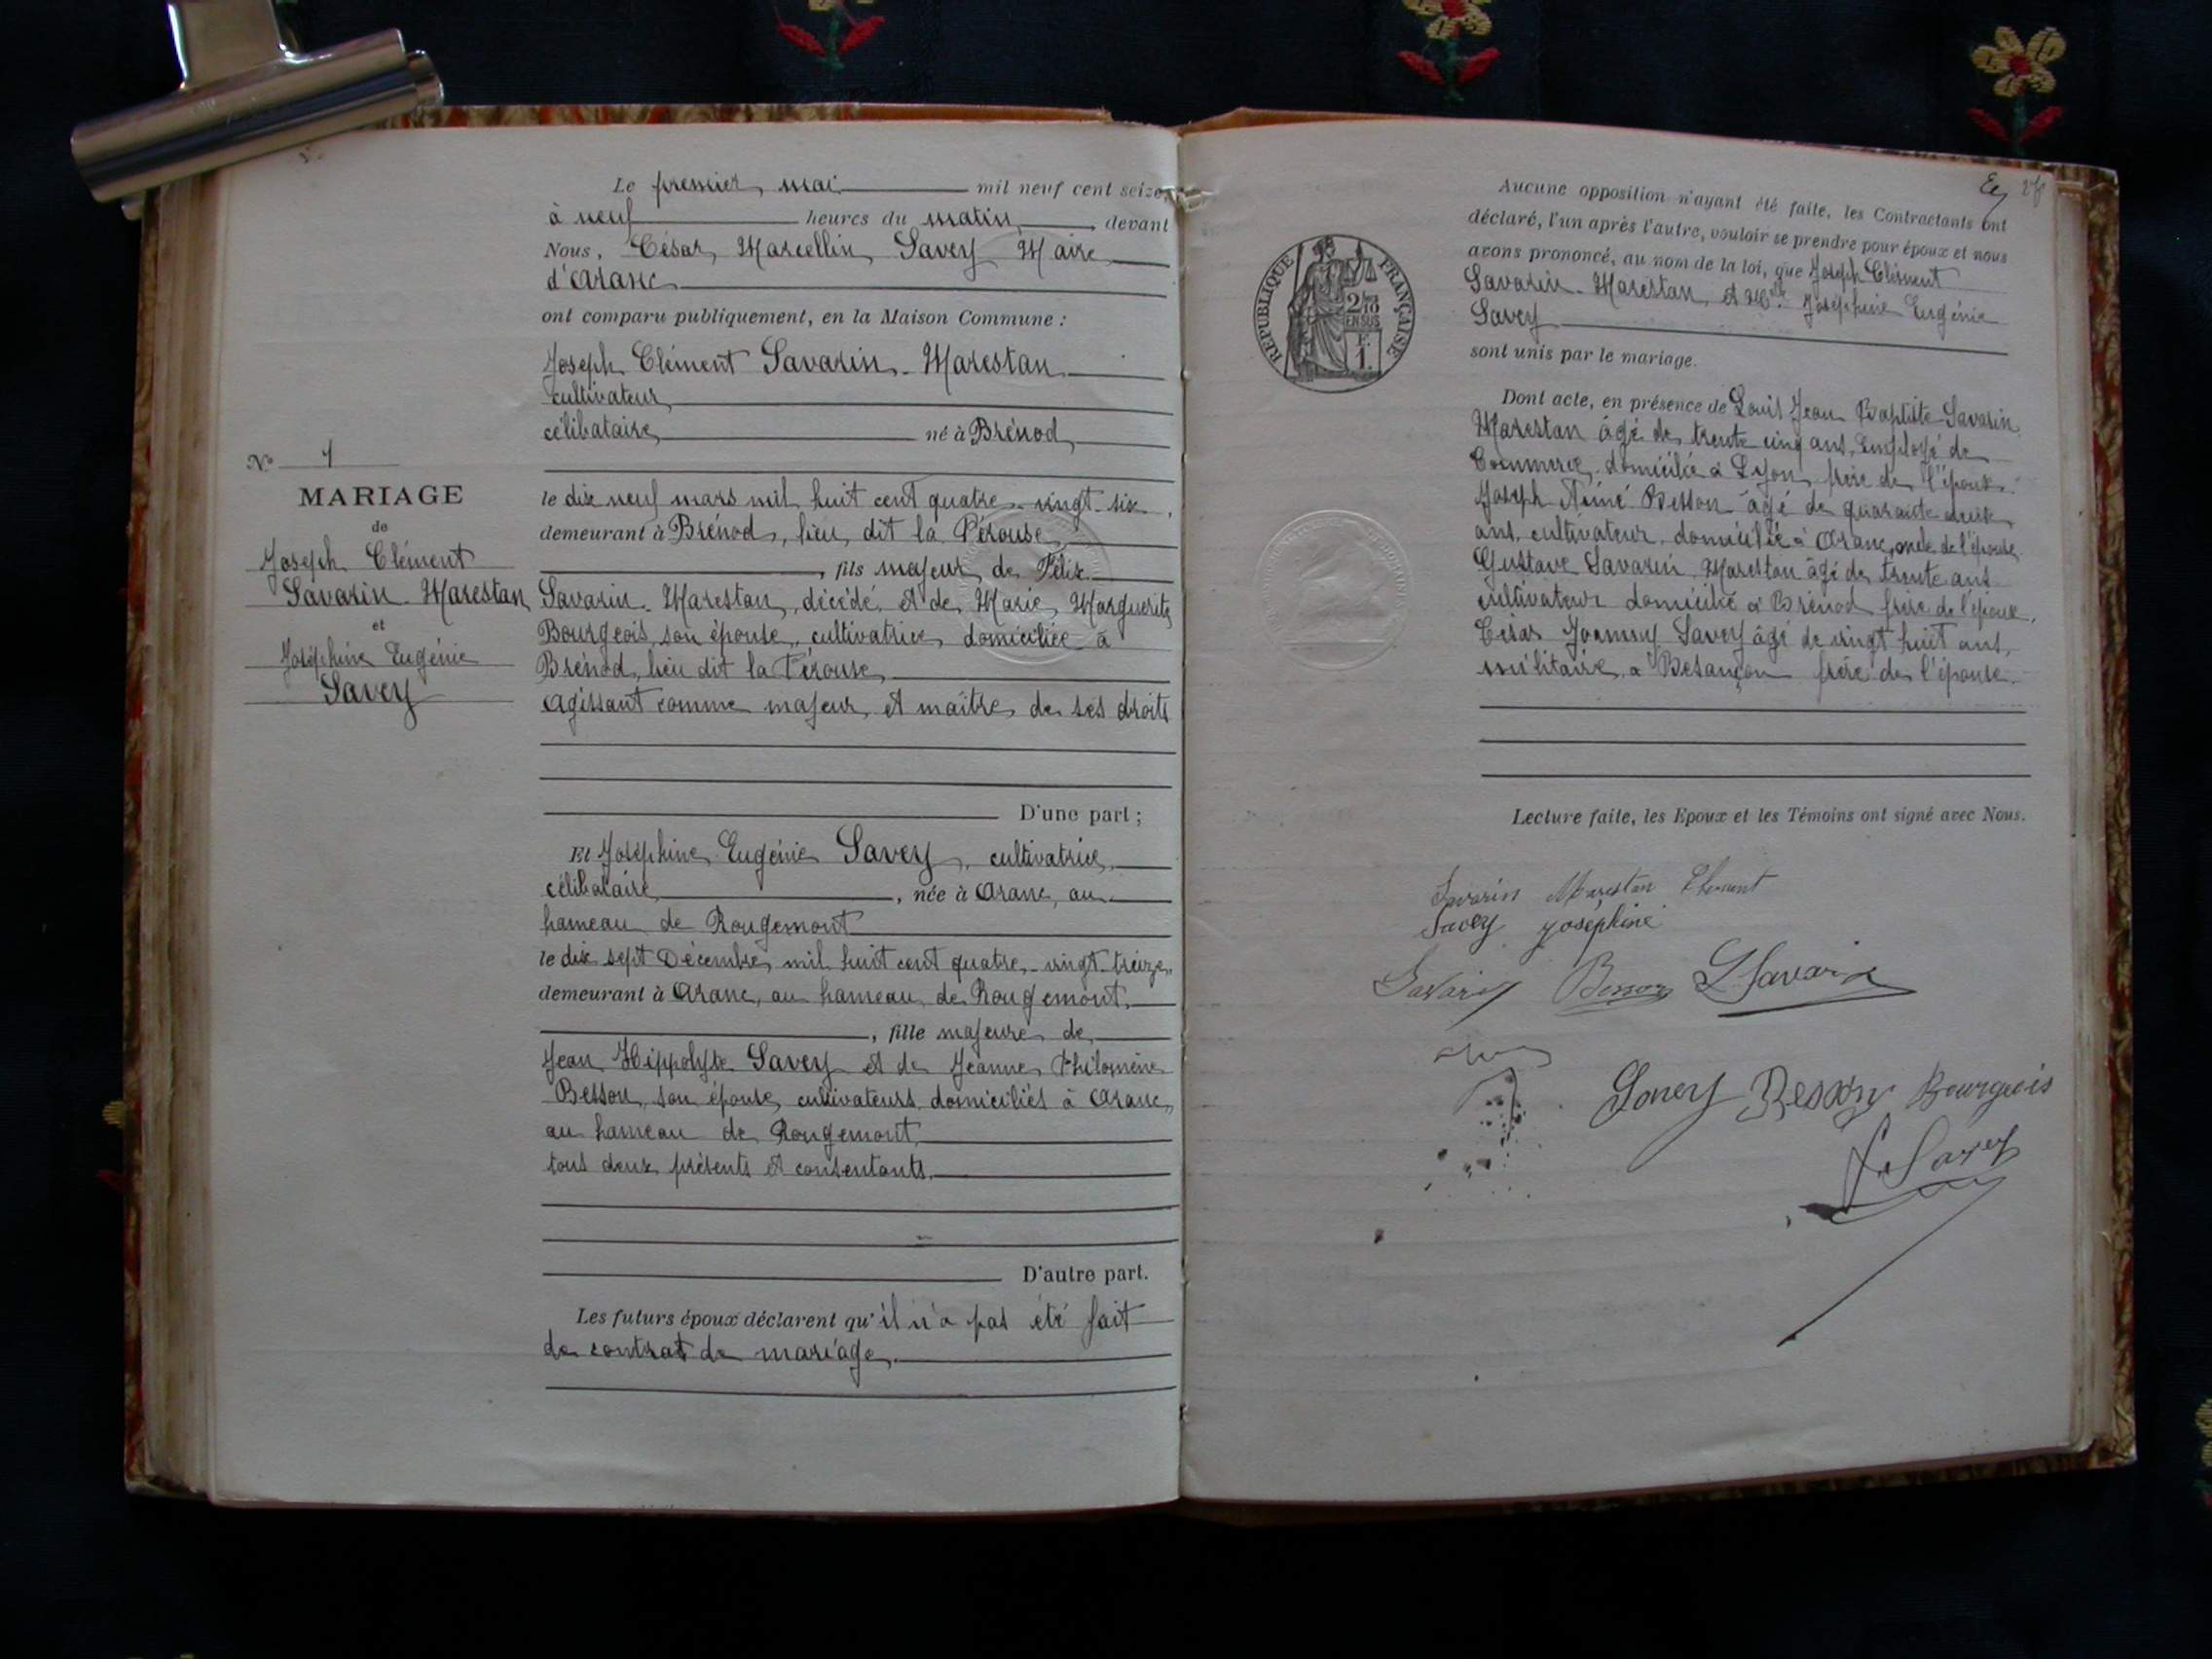 Le premier mai mil neuf cent seize,
à neuf heures du matin, devant
Nous, César, Marcellin, Savey Maire
d'Aranc
ont comparu publiquement, en la Maison Commune :
Joseph Clément Savarin-Marestan
cultivateur
célibataire né à Brénod
N° 1
MARIAGE
de
Joseph Clément
Savarin-Marestan
et
Joséphine Eugénie
Savey
le dix neuf mars mil huit cent quatre-vingt-six,
demeurant à Brénod, lieu dit la Pérouse
, fils majeur de Félix
Savarin-Marestan, décédé, et de Marie Marguerite
Bourgeois son épouse, cultivatrice, domiciliée à
Brénod, lieu dit la Pérouse
Agissant comme majeur et maître de ses droits
D'une part ;
Et Joséphine Eugénie Savey, cultivatrice,
célibataire, née à Aranc, au
hameau de Rougemont
le dix sept Décembre mil huit cent quatre-vingt-treize,
demeurant à Aranc, au hameau de Rougemont,
, fille majeure de
Jean Hippolyte Savey et de Jeanne Philomène
Besson, son épouse, cultivateurs domiciliés à Aranc,
au hameau de Rougemont
tous deux présents et consentants.
D'autre part.
Les futurs époux déclarent qu'il n'a pas été fait
de contrat de mariage.
Aucune opposition n'ayant été faite, les Contractants ont
déclaré, l'un après l'autre, vouloir se prendre pour époux et nous
avons prononcé, au nom de la loi, que Joseph Clément
Savarin-Marestan, et Melle Joséphine Eugénie
Savey
sont unis par le mariage.
RÉPUBLIQUE FRANÇAISE
2/10
EN SUS
F.
1.
Dont acte, en présence de Louis Jean Baptiste Savarin
Marestan âgé de trente cinq ans, Employé de
Commerce, domicilié à Lyon frère de l'époux.
Joseph Aimé Besson âgé de quarante deux
ans, cultivateur, domicilié à Aranc, oncle de l'épouse
Gustave Savarin Marestan âgé de trente ans
cultivateur domicilié à Brénod frère de l'époux,
César Joanny Savey âgé de vingt huit ans,
militaire à Besançon frère de l'épouse.
Lecture faite, les Epoux et les Témoins ont signé avec Nous.
Savarin Marestan Clément
Savey Joséphine
Savarin Besson L Savarin
Savey Besson Bourgeois
Savey